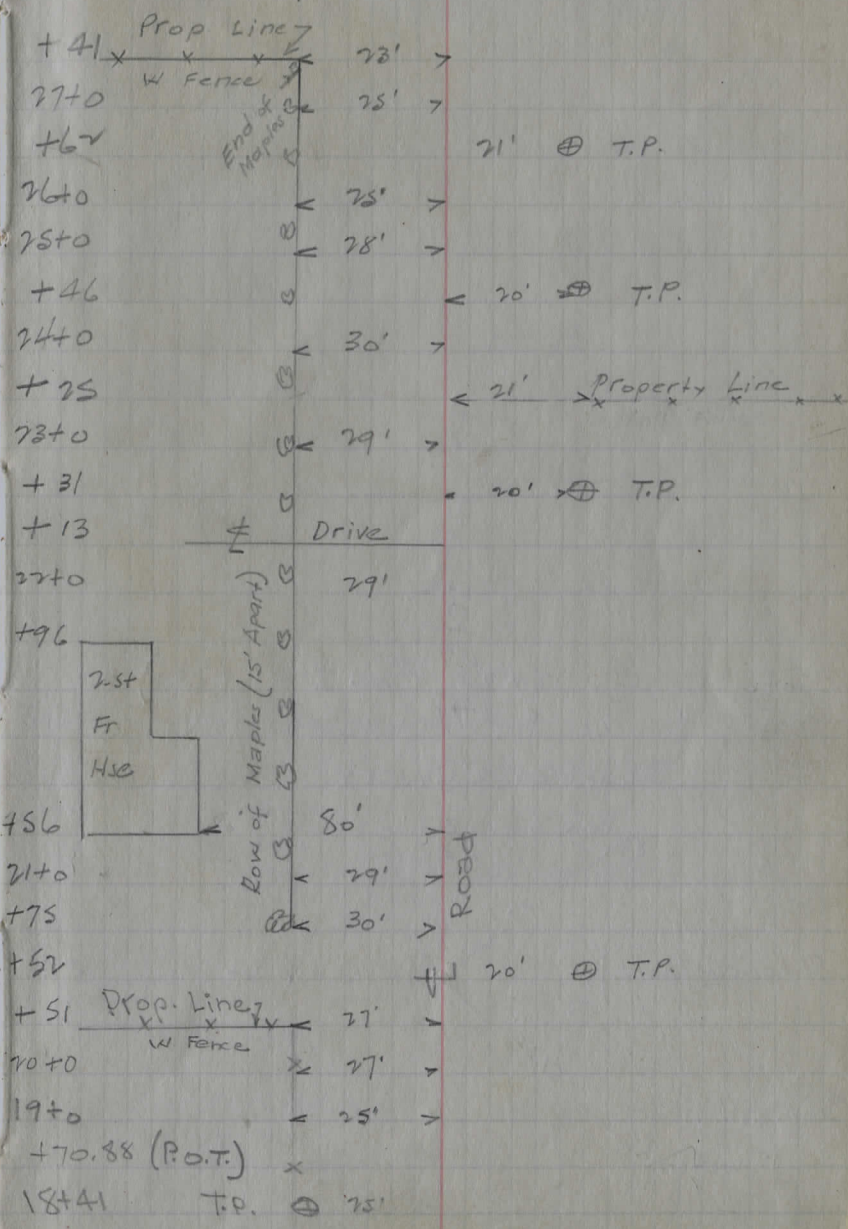 Prop Line
+41 23'
W Fence
27+0 25'
End of Maples
+62 21' ⊕ T.P.
26+0 25'
25+0 28'
+46 20' ⊕ T.P.
24+0 30'
+25 21' Property Line
23+0 29'
+31 20' ⊕ T.P.
+13 ℄ Drive
22+0 29'
+96
2-St
Fr
Hse
Row of Maples (15' Apart)
+56 80'
21+0 29'
Road
+75 30'
+52 ℄ 20' ⊕ T.P.
+51 Prop. Line 27'
W Fence
20+0 27'
19+0 25'
+70.88 (P.O.T.)
18+41 T.P. ⊕ 25'